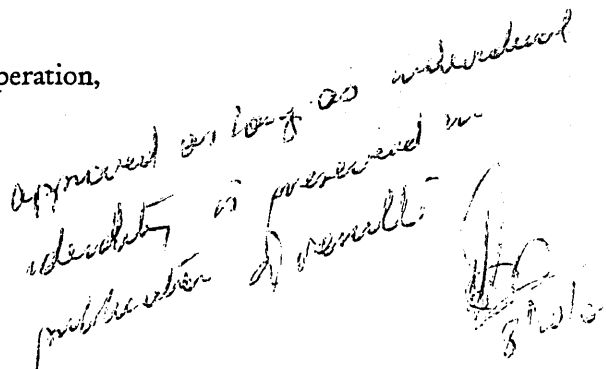 peration,
approved as long as individual
identity is preserved in
publication of results